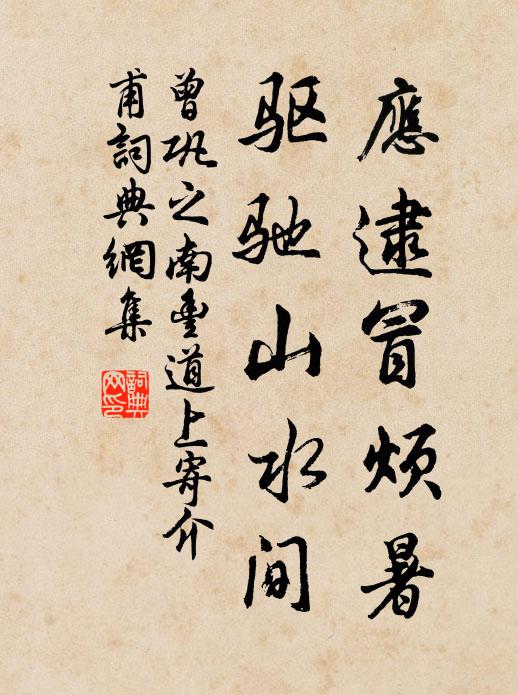 應逮冒烦暑
驱驰山水间
曾巩之南豊道上寄介
甫詞典網集
詞典
网印